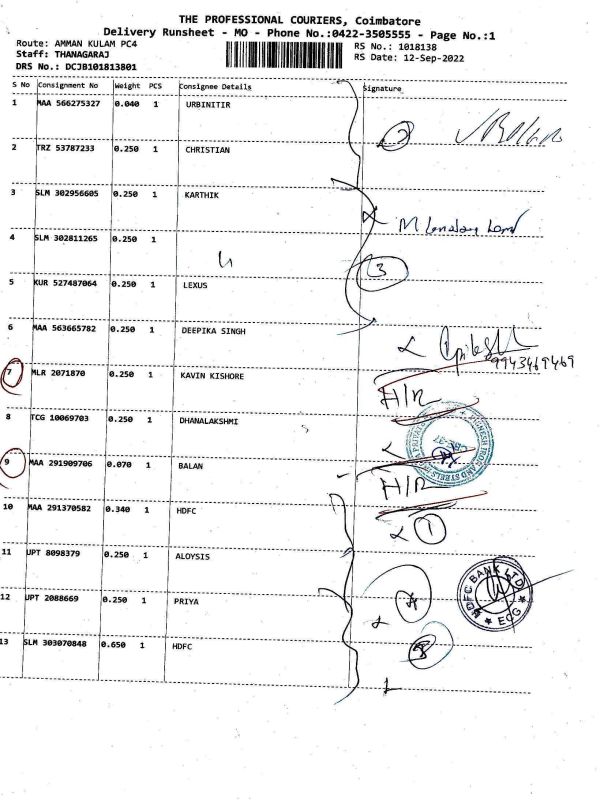 THE PROFESSIONAL COURIERS, Coimbatore
Delivery Runsheet - MO - Phone No.:0422-3505555 - Page No.:1
Route: AMMAN KULAM PC4
Staff: THANAGARAJ
DRS No.: DCJB101813801
RS No.: 1018138
RS Date: 12-Sep-2022
S No Consignment No Weight PCS Consignee Details Signature
1 MAA 566275327 0.040 1 URBINITIR
2 TRZ 53787233 0.250 1 CHRISTIAN
3 SLM 302956605 0.250 1 KARTHIK
4 SLM 302811265 0.250 1
3
5 KUR 527487064 0.250 1 LEXUS
6 MAA 563665782 0.250 1 DEEPIKA SINGH
9943469469
7 MLR 2071870 0.250 1 KAVIN KISHORE
H/R
8 TCG 10069703 0.250 1 DHANALAKSHMI
9 MAA 291909706 0.070 1 BALAN
H/R
10 MAA 291370582 0.340 1 HDFC
1
11 UPT 8098379 0.250 1 ALOYSIS
12 UPT 2088669 0.250 1 PRIYA
HDFC BANK LTD
ECG
13 SLM 303070848 0.650 1 HDFC